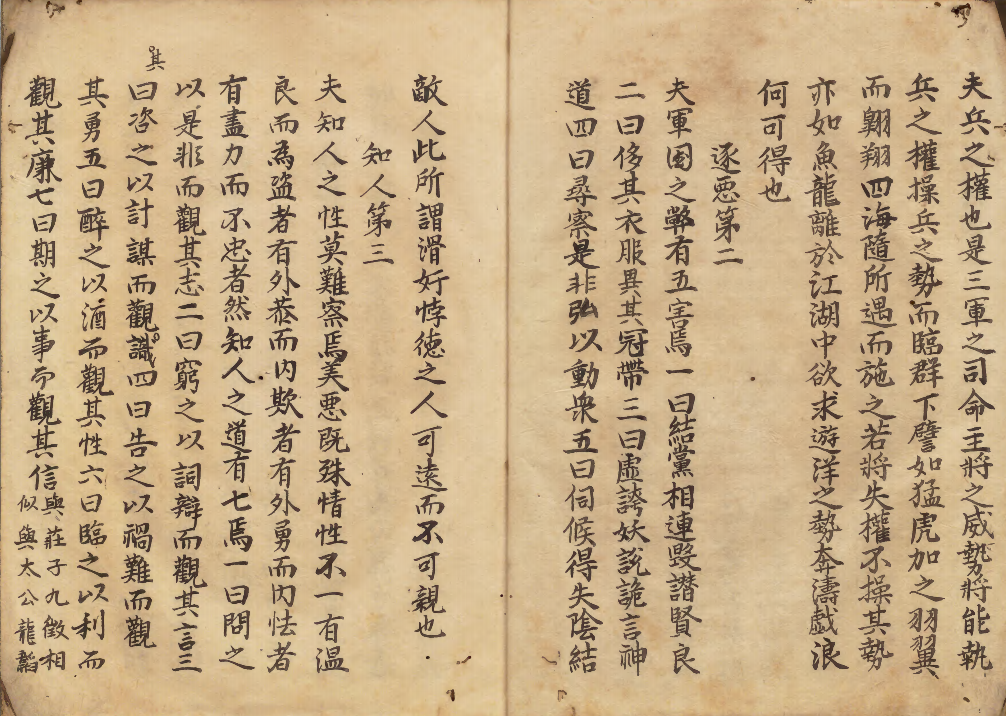 夫兵之權也是三軍之司命主將之威勢將能執
兵之權操兵之勢而臨群下譬如猛虎加之羽翼
而翺翔四海隨所遇而施之若將失權不操其勢
亦如魚龍離於江湖中欲求遊洋之勢奔濤戯浪
何可得也
逐悪第二
夫軍国之弊有五害焉一曰結黨相連毀譖賢良
二曰侈其衣服異其冠帶三曰虛誇妖説詭言神
道四曰尋察是非弘以動衆五曰伺候得失陰結
敵人此所謂滑奸悖徳之人可遠而不可親也
知人第三
夫知人之性莫難察焉美悪既殊情性不一有温
良而為盗者有外恭而内欺者有外勇而内怯者
有盡力而不忠者然知人之道有七焉一曰問之
以是非而觀其志二曰窮之以詞辯而觀其言三
曰咨之以計謀而觀識四曰告之以禍難而觀
其
其勇五曰醉之以酒而觀其性六曰臨之以利而
觀其廉七曰期之以事而觀其信
與莊子九徴相
似與太公龍韜